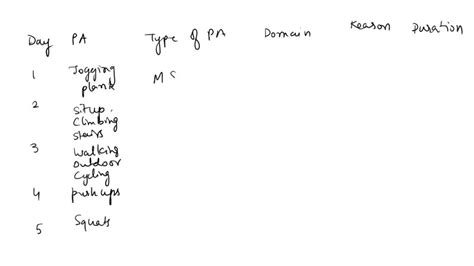 Day PA Type of PA Domain Reason Duration
1 Jogging M S
plank
2 situp.
Climbing
stairs
3 Walking
outdoor
Cycling
4 pushups
5 Squats